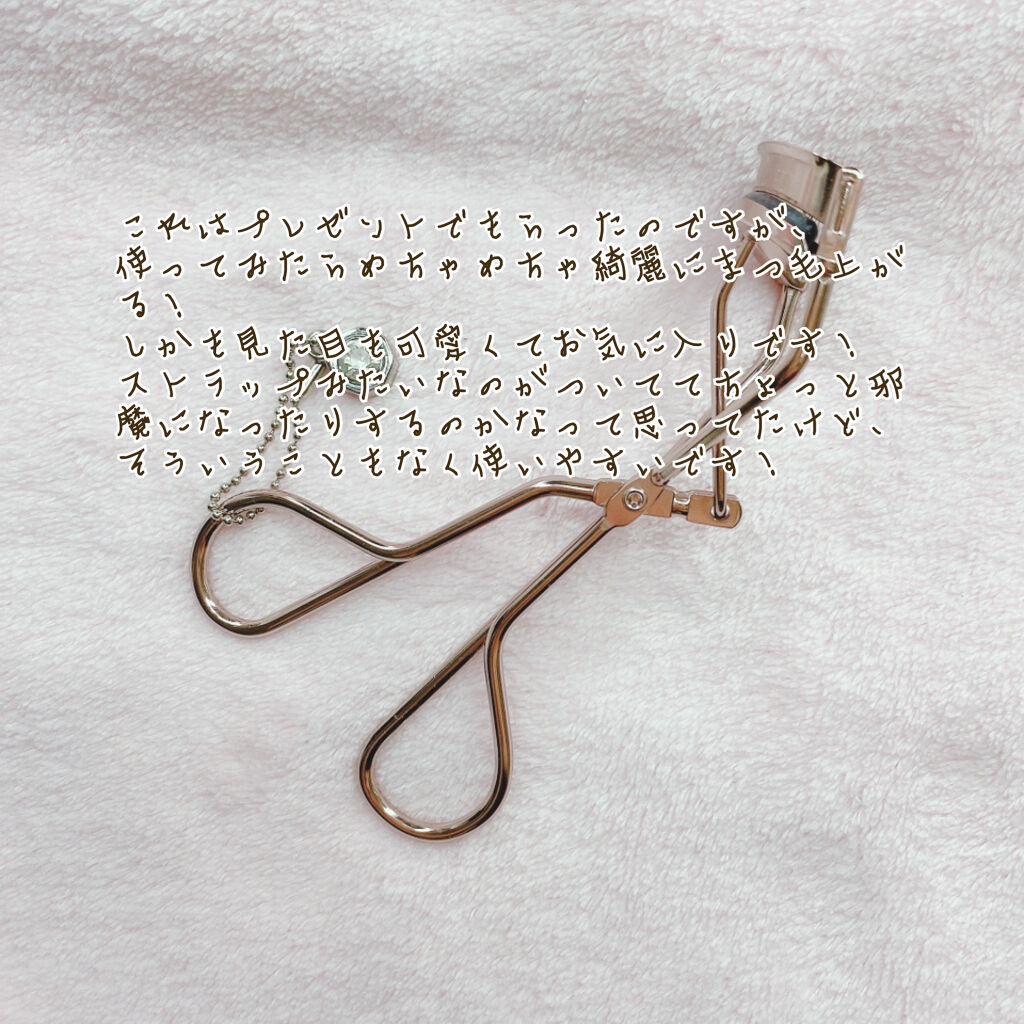 これはプレゼントでもらったのですが、
使ってみたらめちゃめちゃ綺麗にまつ毛上が
る！
しかも見た目も可愛くてお気に入りです！
ストラップみたいなのがついててちょっと邪
魔になったりするのかなって思ってたけど、
そういうこともなく使いやすいです！